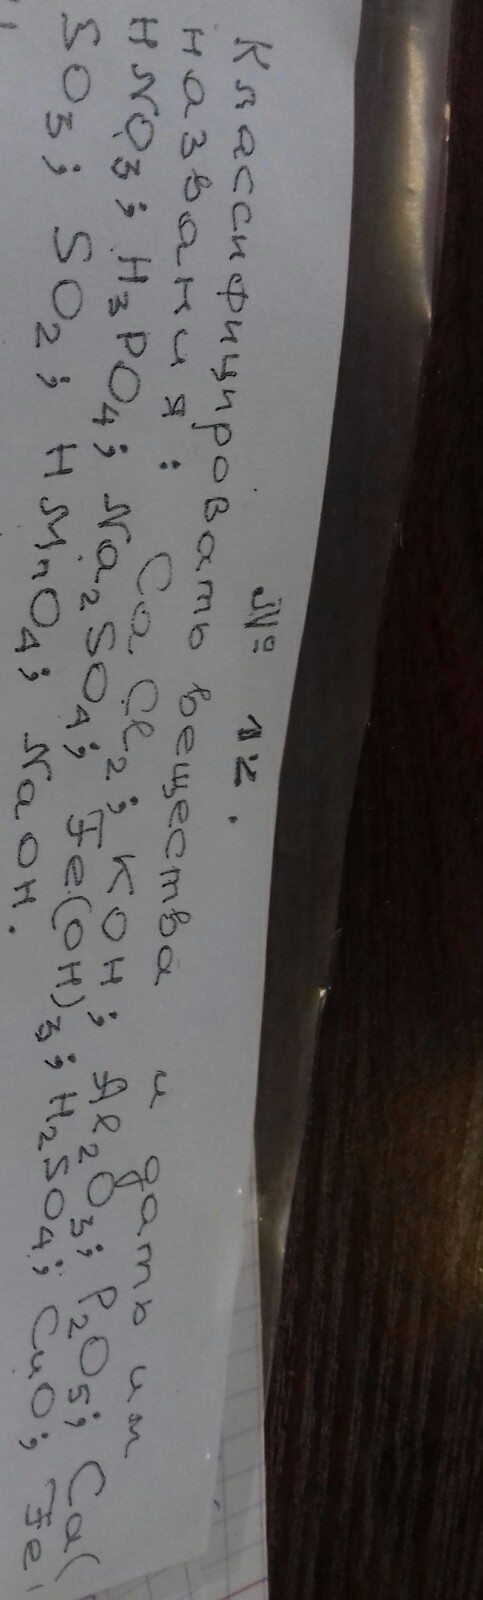 № 12.
Классифицировать вещества и дать им
названия: CaCl2; KOH; Al2O3; P2O5; Ca(
HNO3; H3PO4; Na2SO4; Fe(OH)3; H2SO4; CuO; Fe
SO3; SO2; HMnO4; NaOH.